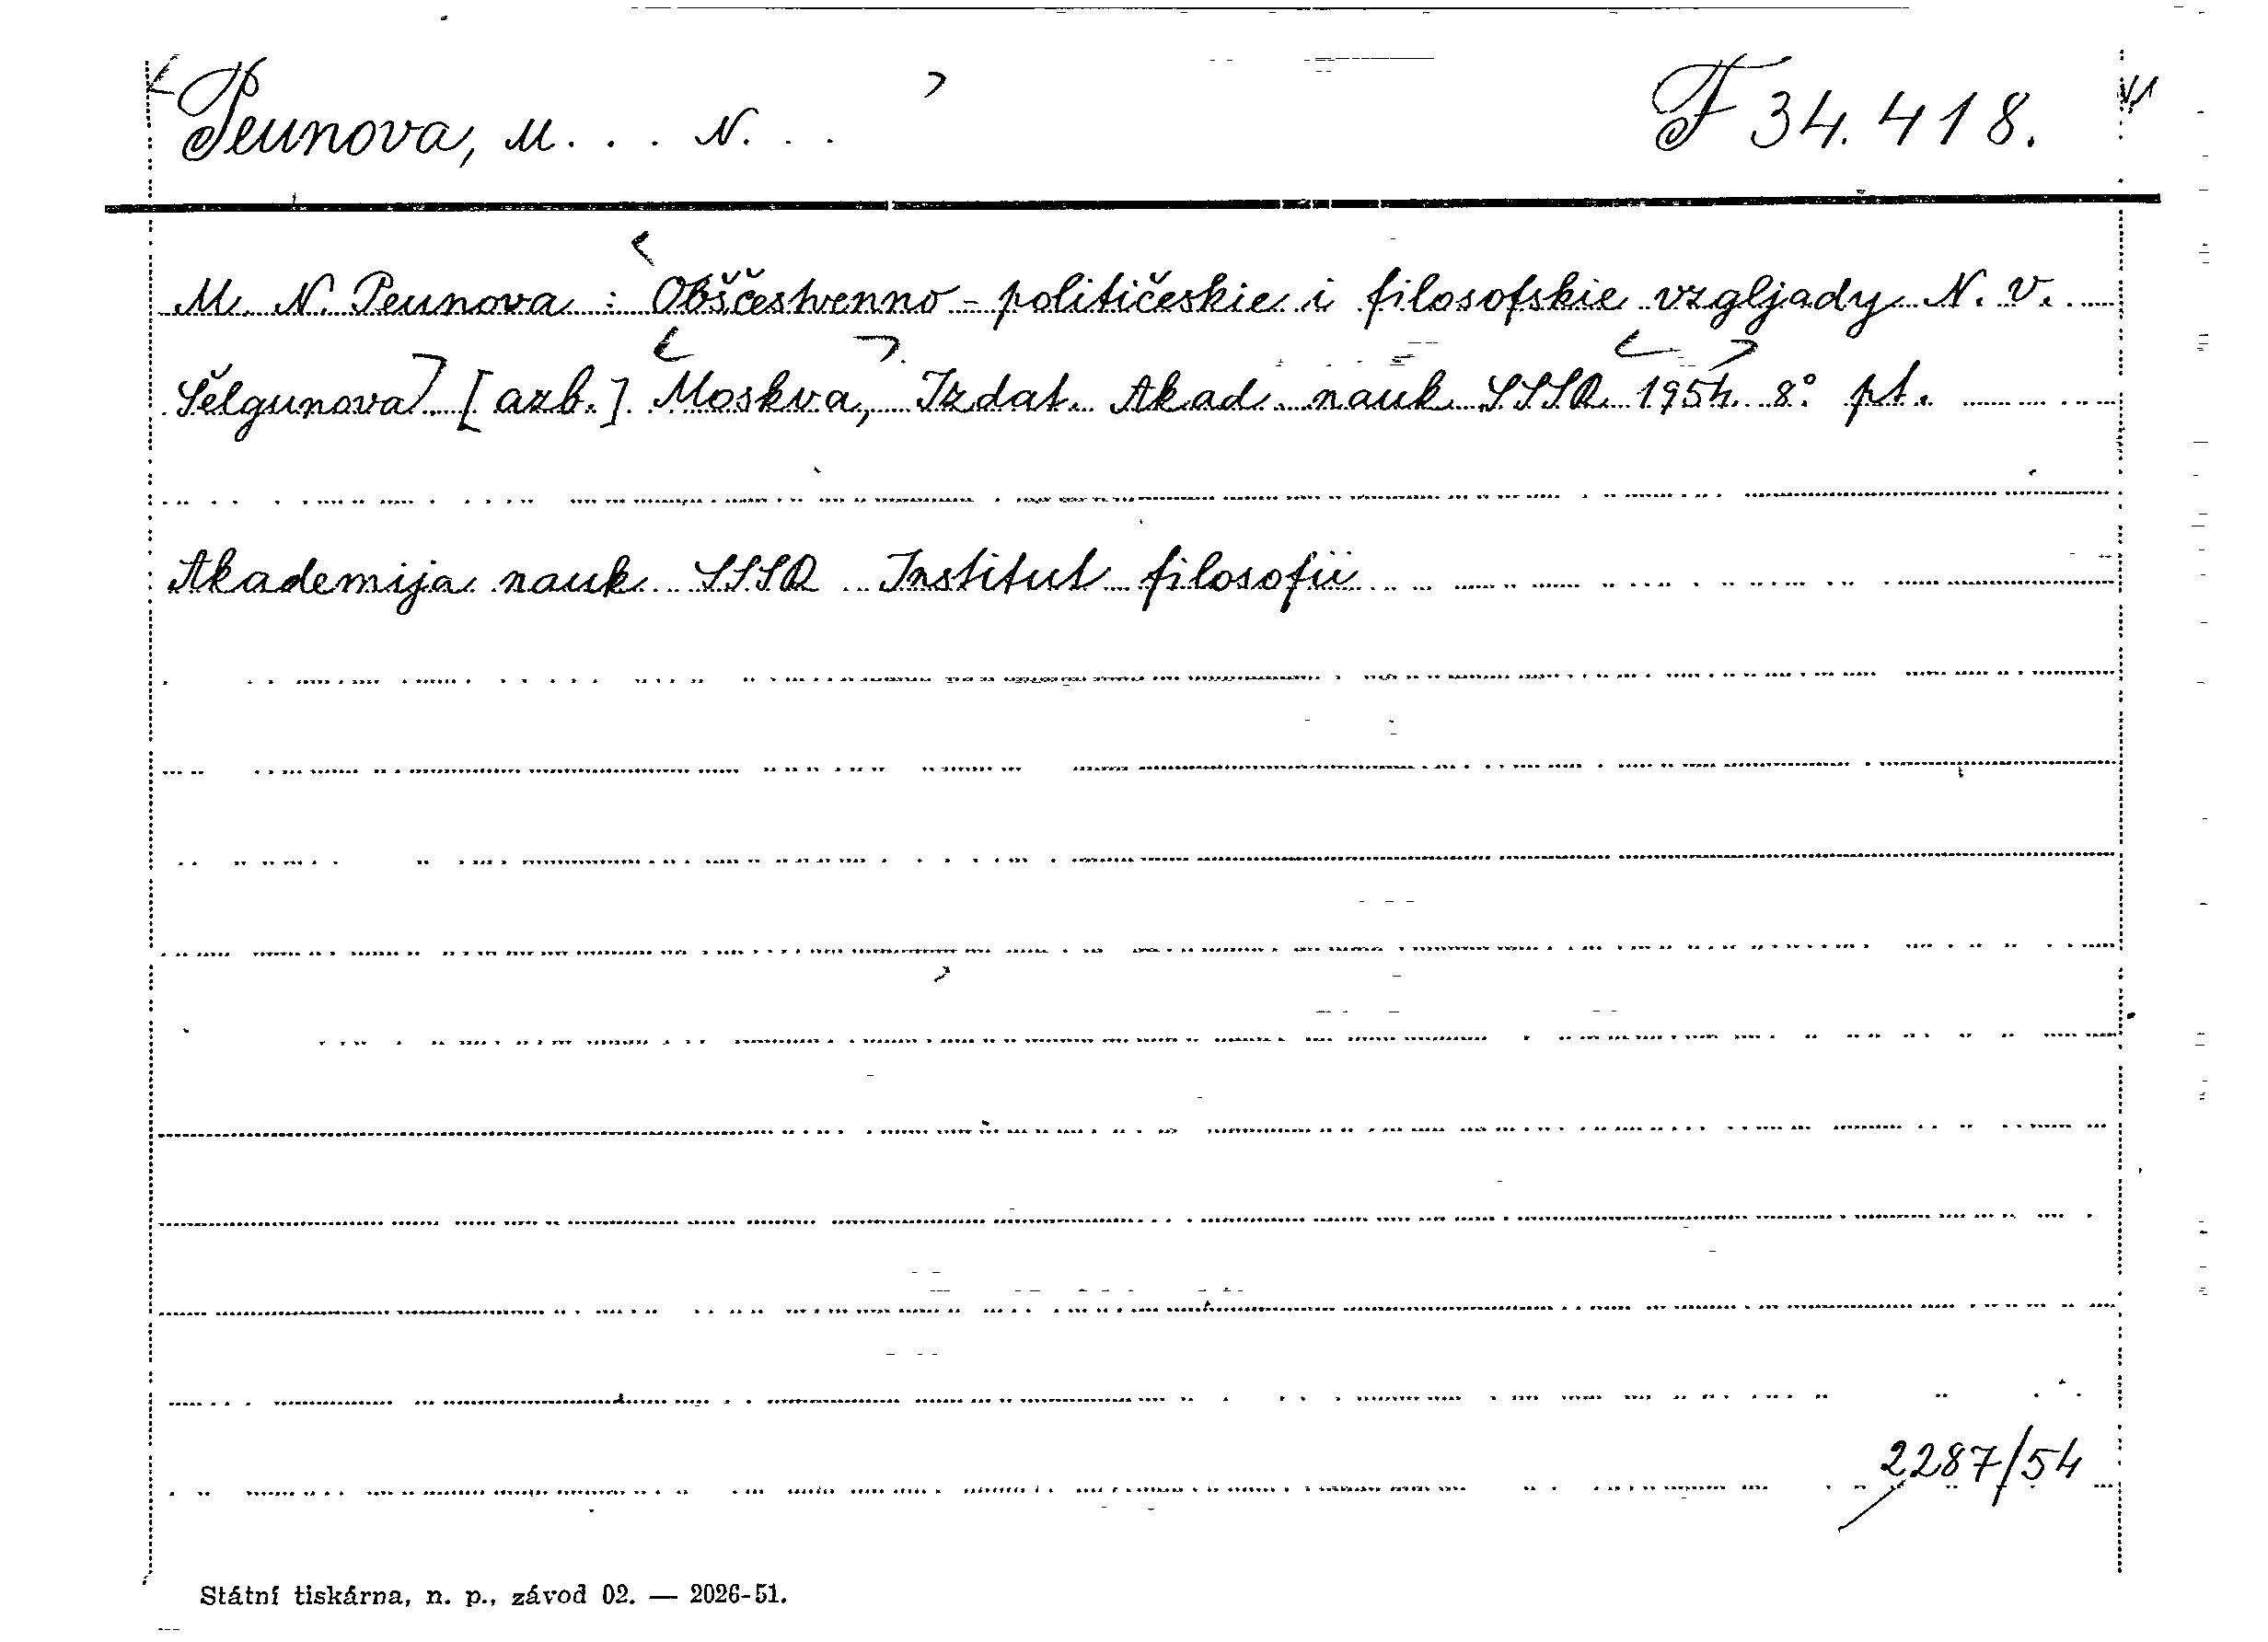 Peunova, M... N... F 34.418.
M. N. Peunova: Obščestvenno-političeskie i filosofskie vzgljady N. V.
Šelgunova [azb.] Moskva, Izdat. Akad. nauk SSSR 1954. 8° pt.
Akademija nauk SSSR Institut filosofii
2287/54
Státní tiskárna, n. p., závod 02. — 2026-51.